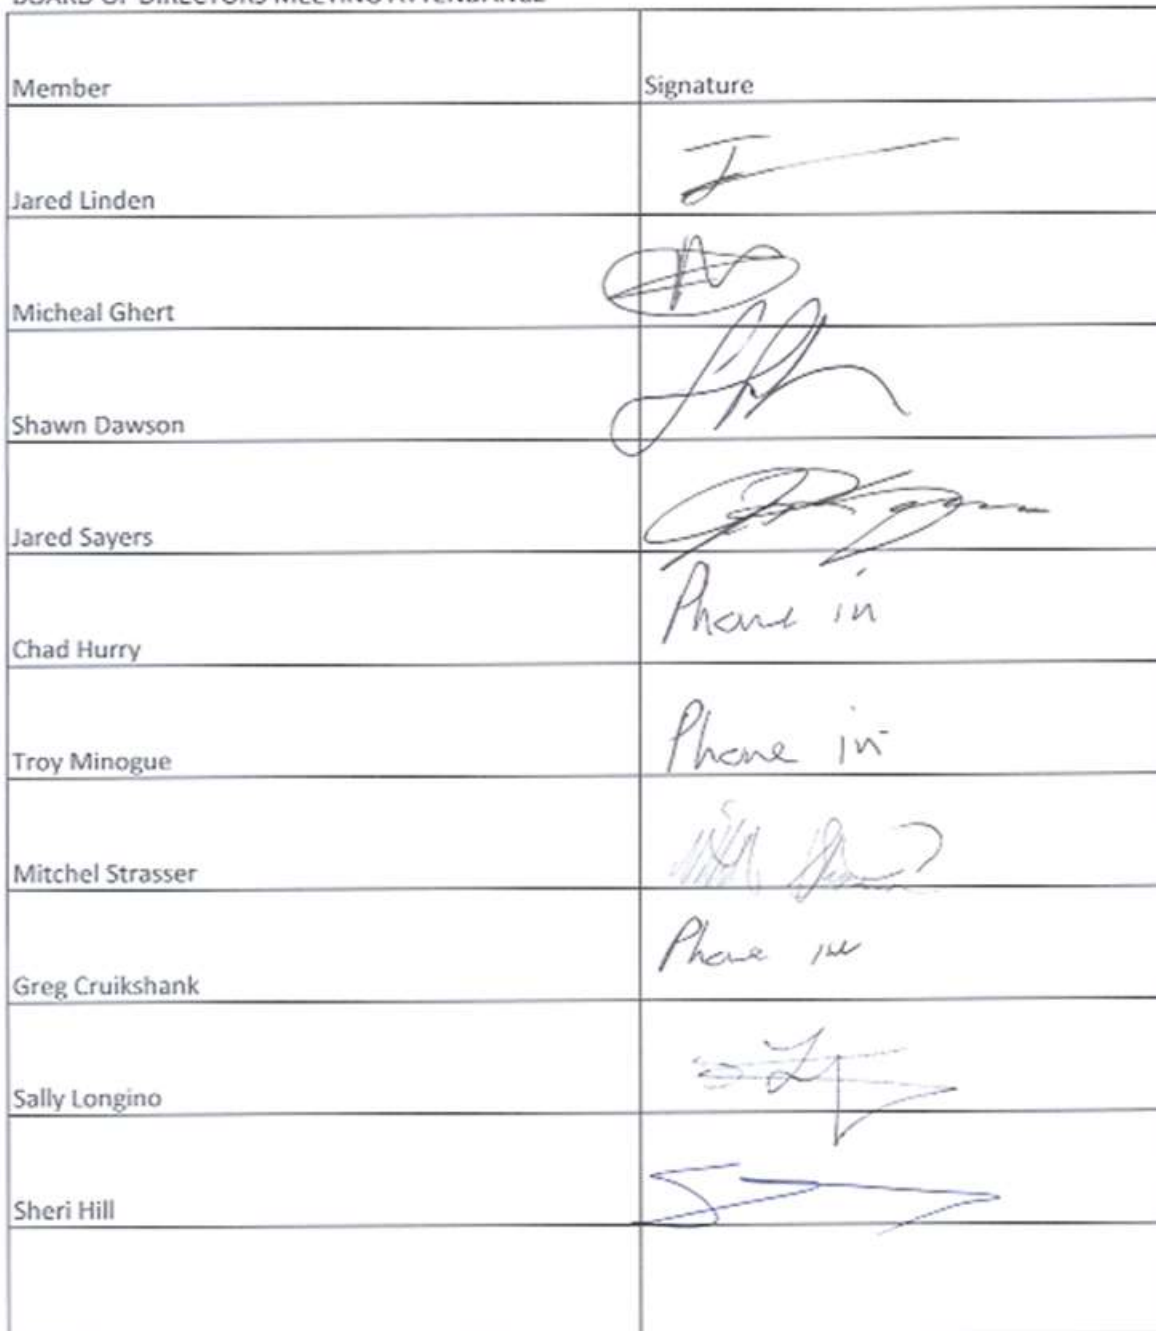 BOARD OF DIRECTORS MEETING ATTENDANCE
Member Signature
Jared Linden
Micheal Ghert
Shawn Dawson
Jared Sayers
Chad Hurry Phone in
Troy Minogue Phone in
Mitchel Strasser
Greg Cruikshank Phone in
Sally Longino
Sheri Hill